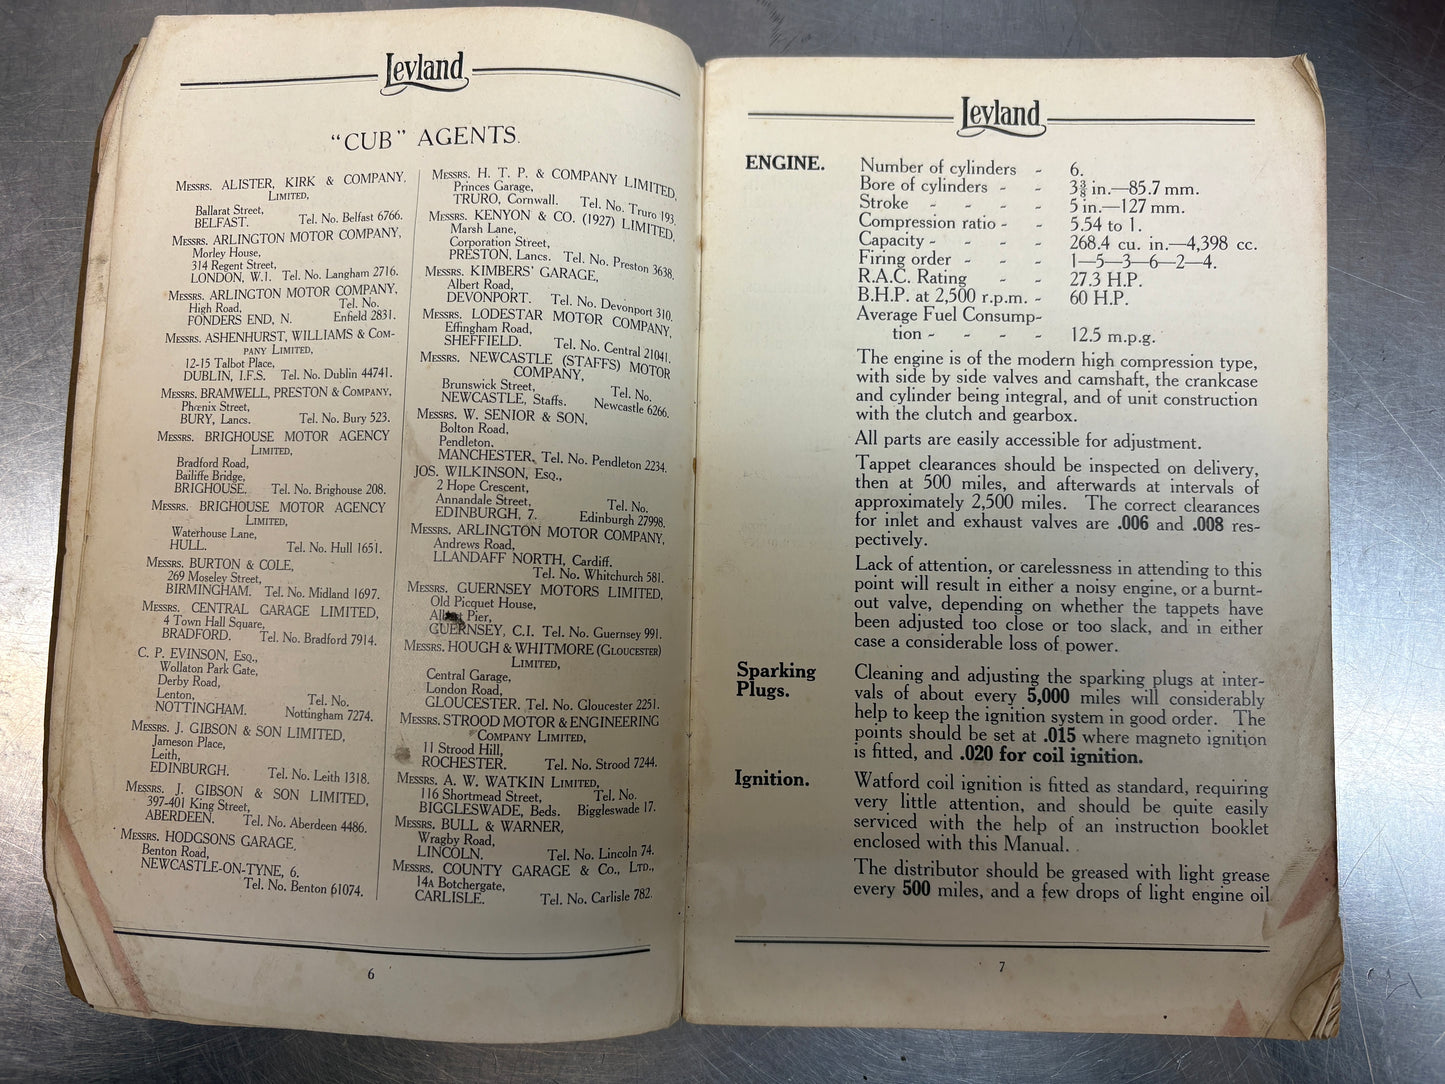 Leyland
"CUB" AGENTS.
MESSRS. ALISTER, KIRK & COMPANY,
LIMITED,
Ballarat Street,
BELFAST. Tel. No. Belfast 6766.
MESSRS. ARLINGTON MOTOR COMPANY,
Morley House,
314 Regent Street,
LONDON, W.1. Tel. No. Langham 2716.
MESSRS. ARLINGTON MOTOR COMPANY,
High Road, Tel. No.
FONDERS END, N. Enfield 2831.
MESSRS. ASHENHURST, WILLIAMS & COM-
PANY LIMITED,
12-15 Talbot Place,
DUBLIN, I.F.S. Tel. No. Dublin 44741.
MESSRS. BRAMWELL, PRESTON & COMPANY,
Phœnix Street,
BURY, Lancs. Tel. No. Bury 523.
MESSRS. BRIGHOUSE MOTOR AGENCY
LIMITED,
Bradford Road,
Bailiffe Bridge,
BRIGHOUSE. Tel. No. Brighouse 208.
MESSRS. BRIGHOUSE MOTOR AGENCY
LIMITED,
Waterhouse Lane,
HULL. Tel. No. Hull 1651.
MESSRS. BURTON & COLE,
269 Moseley Street,
BIRMINGHAM. Tel. No. Midland 1697.
MESSRS. CENTRAL GARAGE LIMITED,
4 Town Hall Square,
BRADFORD. Tel. No. Bradford 7914.
C. P. EVINSON, ESQ.,
Wollaton Park Gate,
Derby Road,
Lenton, Tel. No.
NOTTINGHAM. Nottingham 7274.
MESSRS. J. GIBSON & SON LIMITED,
Jameson Place,
Leith,
EDINBURGH. Tel. No. Leith 1318.
MESSRS. J. GIBSON & SON LIMITED,
397-401 King Street,
ABERDEEN. Tel. No. Aberdeen 4486.
MESSRS. HODGSONS GARAGE,
Benton Road,
NEWCASTLE-ON-TYNE, 6.
Tel. No. Benton 61074.
MESSRS. H. T. P. & COMPANY LIMITED,
Princes Garage,
TRURO, Cornwall. Tel. No. Truro 193.
MESSRS. KENYON & CO. (1927) LIMITED,
Marsh Lane,
Corporation Street,
PRESTON, Lancs. Tel. No. Preston 3638.
MESSRS. KIMBERS' GARAGE,
Albert Road,
DEVONPORT. Tel. No. Devonport 310.
MESSRS. LODESTAR MOTOR COMPANY,
Effingham Road,
SHEFFIELD. Tel. No. Central 21041.
MESSRS. NEWCASTLE (STAFFS) MOTOR
COMPANY,
Brunswick Street, Tel. No.
NEWCASTLE, Staffs. Newcastle 6266.
MESSRS. W. SENIOR & SON,
Bolton Road,
Pendleton,
MANCHESTER. Tel. No. Pendleton 2234.
JOS. WILKINSON, ESQ.,
2 Hope Crescent,
Annandale Street, Tel. No.
EDINBURGH, 7. Edinburgh 27998.
MESSRS. ARLINGTON MOTOR COMPANY,
Andrews Road,
LLANDAFF NORTH, Cardiff.
Tel. No. Whitchurch 581.
MESSRS. GUERNSEY MOTORS LIMITED,
Old Picquet House,
Pier,
GUERNSEY, C.I. Tel. No. Guernsey 991.
MESSRS. HOUGH & WHITMORE (GLOUCESTER)
LIMITED,
Central Garage,
London Road,
GLOUCESTER. Tel. No. Gloucester 2251.
MESSRS. STROOD MOTOR & ENGINEERING
COMPANY LIMITED,
11 Strood Hill,
ROCHESTER. Tel. No. Strood 7244.
MESSRS. A. W. WATKIN LIMITED,
116 Shortmead Street, Tel. No.
BIGGLESWADE, Beds. Biggleswade 17.
MESSRS. BULL & WARNER,
Wragby Road,
LINCOLN. Tel. No. Lincoln 74.
MESSRS. COUNTY GARAGE & CO., LTD.,
14A Botchergate,
CARLISLE. Tel. No. Carlisle 782.
6
Leyland
ENGINE. Number of cylinders - 6.
Bore of cylinders - - 3⅜ in.—85.7 mm.
Stroke - - - - 5 in.—127 mm.
Compression ratio - - 5.54 to 1.
Capacity - - - - 268.4 cu. in.—4,398 cc.
Firing order - - - 1—5—3—6—2—4.
R.A.C. Rating - - 27.3 H.P.
B.H.P. at 2,500 r.p.m. - 60 H.P.
Average Fuel Consump-
tion - - - - 12.5 m.p.g.
The engine is of the modern high compression type,
with side by side valves and camshaft, the crankcase
and cylinder being integral, and of unit construction
with the clutch and gearbox.
All parts are easily accessible for adjustment.
Tappet clearances should be inspected on delivery,
then at 500 miles, and afterwards at intervals of
approximately 2,500 miles. The correct clearances
for inlet and exhaust valves are .006 and .008 res-
pectively.
Lack of attention, or carelessness in attending to this
point will result in either a noisy engine, or a burnt-
out valve, depending on whether the tappets have
been adjusted too close or too slack, and in either
case a considerable loss of power.
Sparking Plugs. Cleaning and adjusting the sparking plugs at inter-
vals of about every 5,000 miles will considerably
help to keep the ignition system in good order. The
points should be set at .015 where magneto ignition
is fitted, and .020 for coil ignition.
Ignition. Watford coil ignition is fitted as standard, requiring
very little attention, and should be quite easily
serviced with the help of an instruction booklet
enclosed with this Manual.
The distributor should be greased with light grease
every 500 miles, and a few drops of light engine oil
7